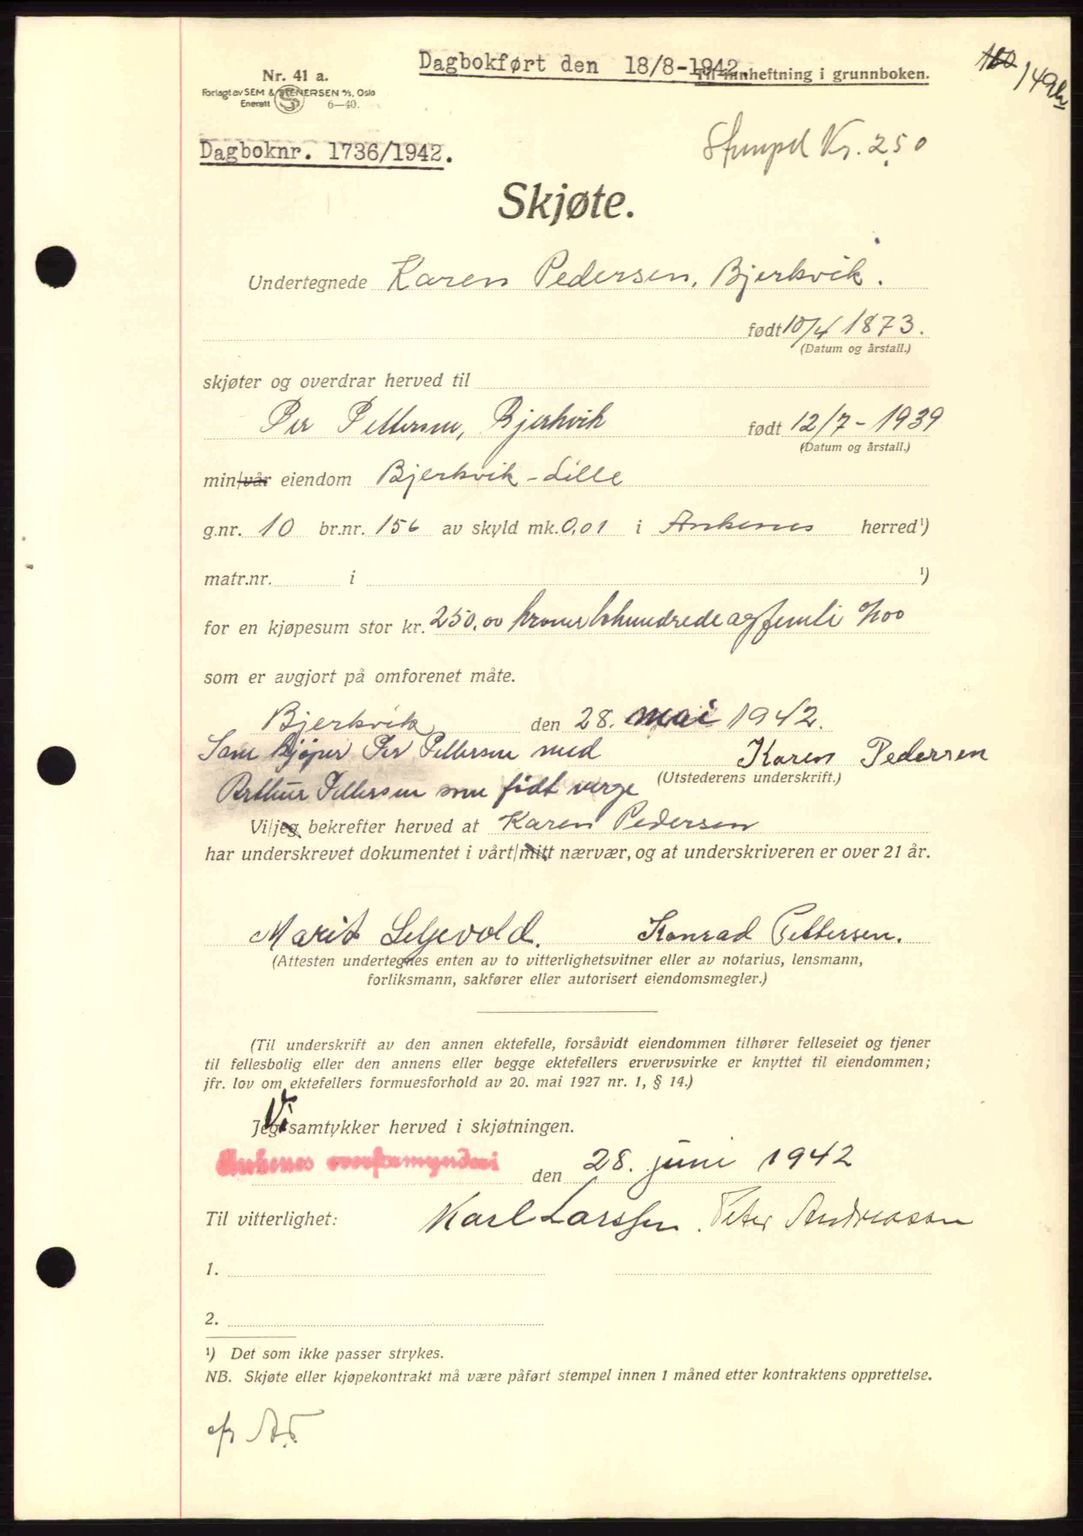 Dagbokført den 18/8-1942.
Til innheftning i grunnboken.
149
Nr. 41 a.
Forlagt av SEM & STENERSEN A/S, Oslo
Enerett 6—40.
Stempel Kr. 2.50
Dagboknr. 1736/1942.
Skjøte.
Undertegnede Karen Pedersen, Bjerkvik.
født 10/4 1873.
(Datum og årstall.)
skjøter og overdrar herved til
Per Pettersen, Bjerkvik født 12/7 - 1939
(Datum og årstall.)
min/vår eiendom Bjerkvik - Lille
g.nr. 10 br.nr. 156 av skyld mk. 0,01 i Ankenes herred¹)
matr.nr. i ¹)
for en kjøpesum stor kr. 250,00 kroner tohundrede og femti %oo
som er avgjort på omforenet måte.
Bjerkvik den 28. mai 1942.
Som kjøper Per Pettersen med Karen Pedersen
(Utstederens underskrift.)
Arthur Pettersen som født verge
Vi/jeg bekrefter herved at Karen Pedersen
har underskrevet dokumentet i vårt/mitt nærvær, og at underskriveren er over 21 år.
Marit Leljevold. Konrad Pettersen.
(Attesten undertegnes enten av to vitterlighetsvitner eller av notarius, lensmann,
forliksmann, sakfører eller autorisert eiendomsmegler.)
(Til underskrift av den annen ektefelle, forsåvidt eiendommen tilhører felleseiet og tjener
til fellesbolig eller den annens eller begge ektefellers ervervsvirke er knyttet til eiendommen;
jfr. lov om ektefellers formuesforhold av 20. mai 1927 nr. 1, § 14.)
Vi
Jeg samtykker herved i skjøtningen.
Ankenes overformynderi den 28. juni 1942
Til vitterlighet: Karl Larssen. Peter Andreassen
1.
2.
¹) Det som ikke passer strykes.
NB. Skjøte eller kjøpekontrakt må være påført stempel innen 1 måned etter kontraktens opprettelse.